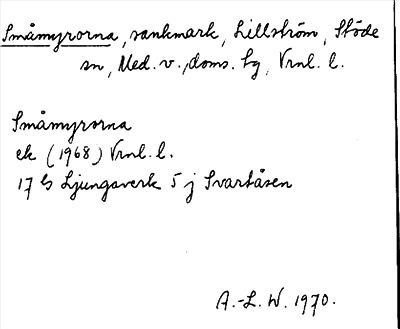 Småmyrorna, sankmark, Lillström, Stöde
sn, Med. v., doms. tg, Vrnl. l.
Småmyrorna
ek (1968) Vrnl. l.
17 G Ljungaverk 5 j Svartåsen
A.-L. W. 1970.